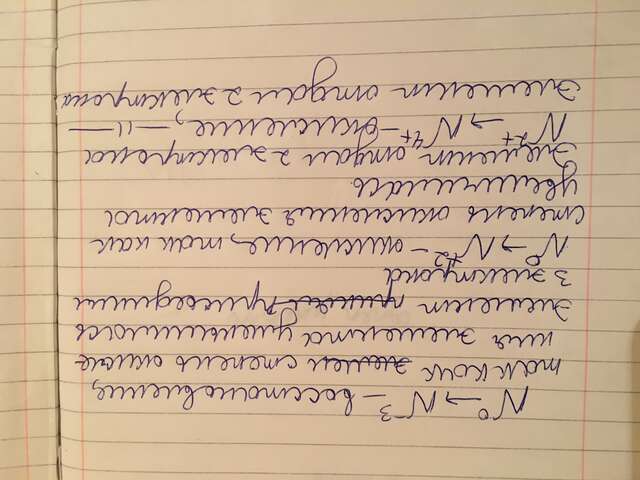 N⁰ → N⁻³ – восстановление,
так как степень окисле
ния элемента уменьшилась
элемент присоединил
3 электрона
N⁰ → N⁺² – окисление, так как
степень окисления элемента
увеличилась
Элемент отдал 2 электрона
N²⁺ → N⁴⁺ – окисление, –||–
Элемент отдал 2 электрона